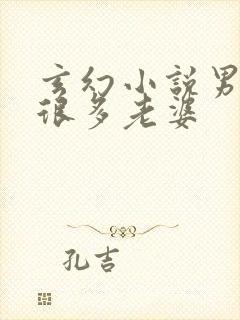 玄幻小说男
很多老婆
孔吉